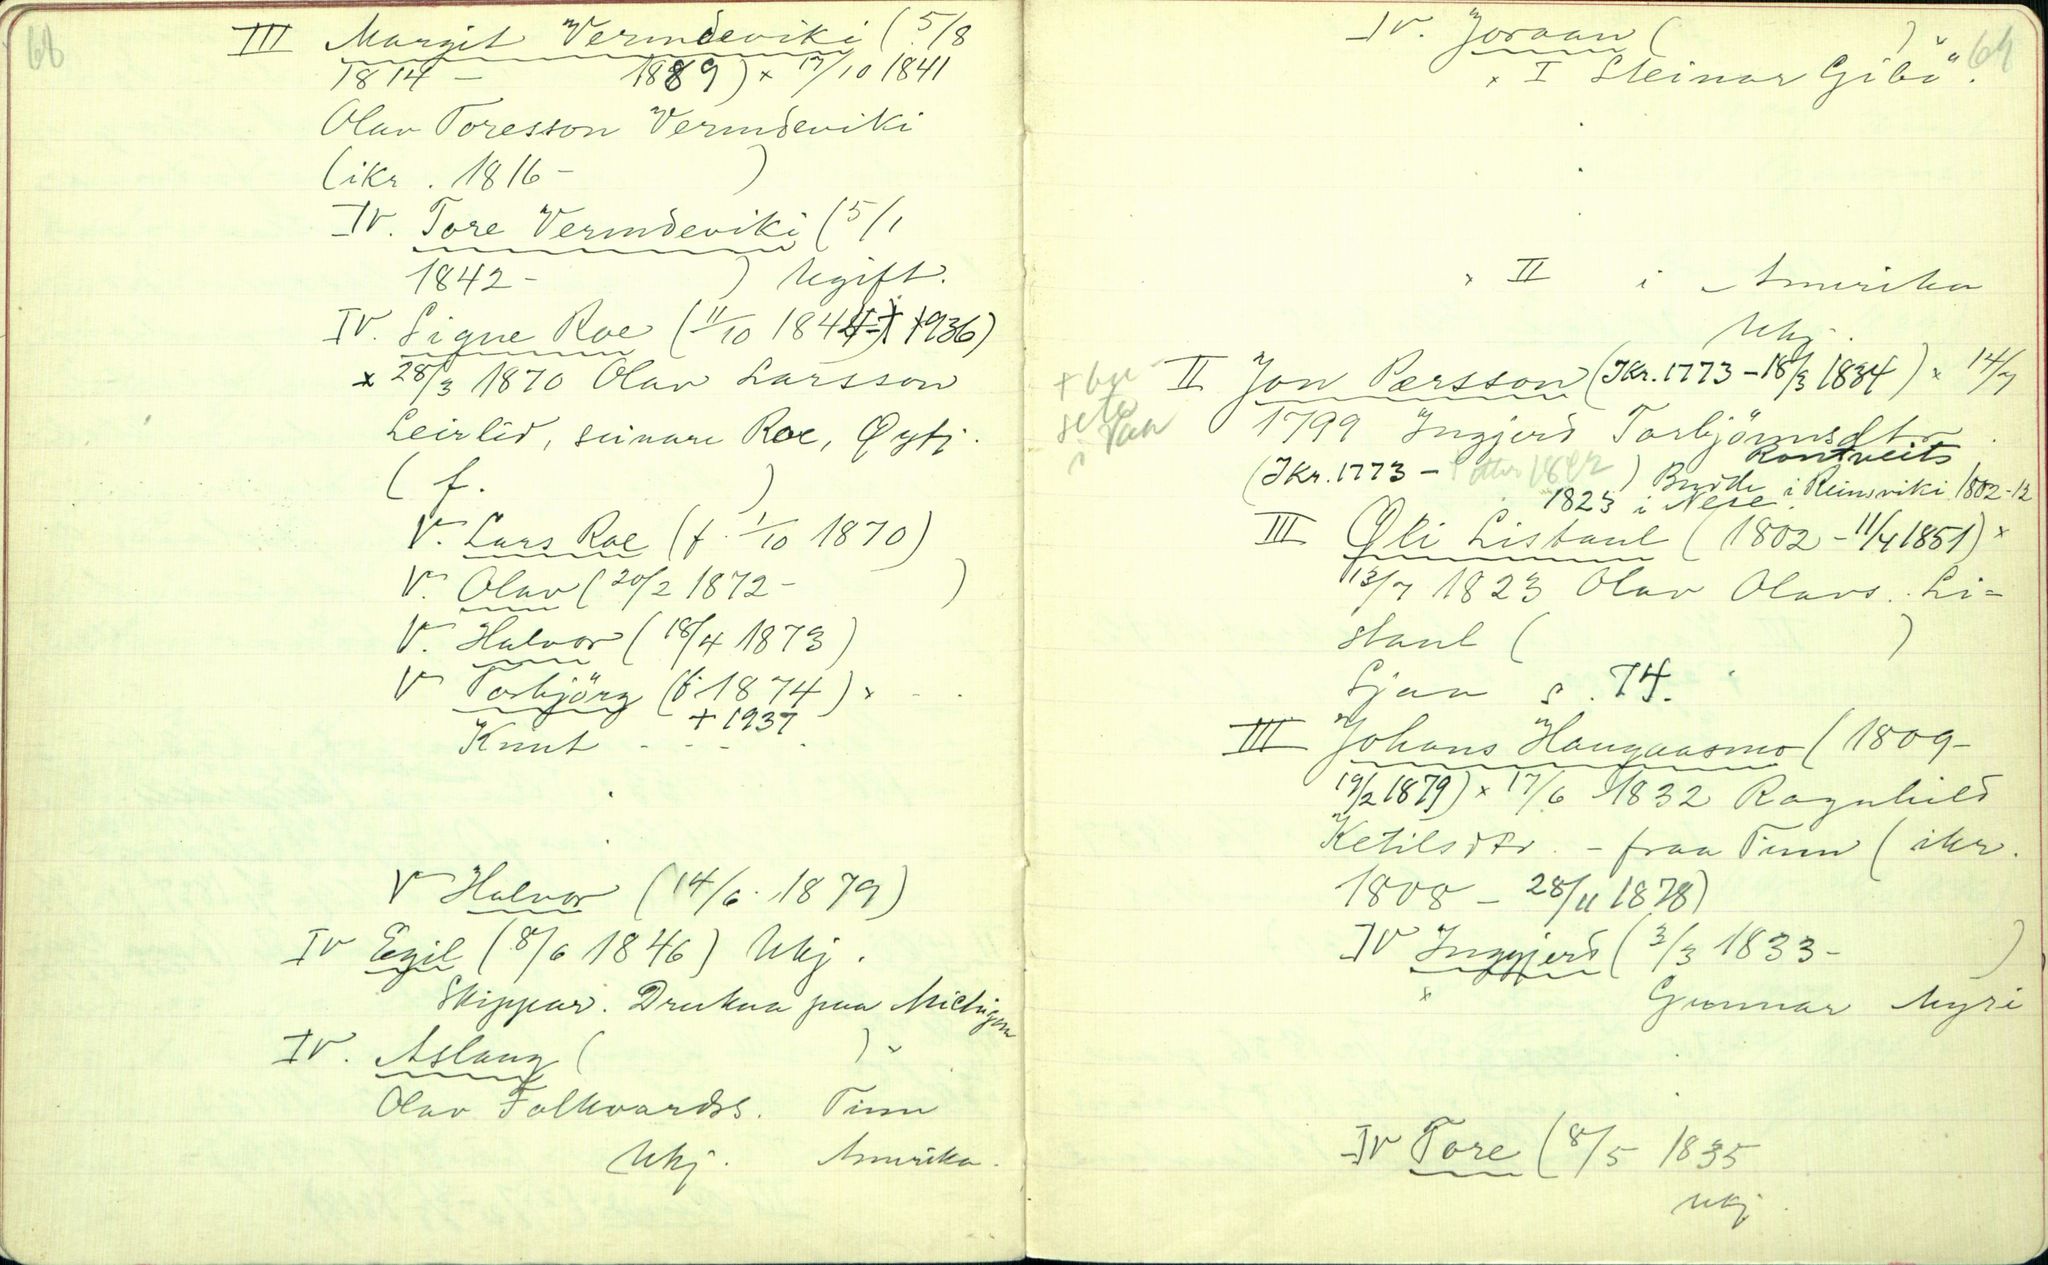 68
III Margit Vermdeviki (5/8
1814 – 1889) × 17/10 1841
Olav Toresson Vermdeviki
(ikr. 1816 – )
IV. Tore Vermdeviki (5/1
1842 – ) Ugift.
IV. Signe Roe (11/10 1844 – 1936)
× 28/3 1870 Olav Larsson
Leirlid, seinare Roe, Øyfj.
( f. )
V. Lars Roe (f. 1/10 1870)
V. Olav (20/2 1872 – )
V. Halvor (18/4 1873)
V Torbjörg (f. 1874) ×
+ 1937
Knut
V Halvor (14/6. 1879)
IV Egil (8/6 1846) Ukj.
Skippar. Drukna paa Michigan
IV. Aslaug ( ) ×
Olav Folkvardss. Tinn
Ukj. Amerika.
IV. Joraan ( ) ×
× I Steinar Gibö.
× II i Amerika
Ukj.
II Jon Pærsson (Ikr. 1773 – 18/3 1834) × 14/7
1799 Ingjerd Torbjörnsdtr.
Rontveits
(Ikr. 1773 – etter 1842) Budde i Reinsviki 1802-12
1823 i Nese.
III Øli Listaul (1802 – 11/4 1851) ×
13/7 1823 Olav Olavs. Li-
staul ( )
Sjaa s. 74.
III Johans Haugaasmo (1809 –
19/2 1879) × 17/6 1832 Ragnhild
Ketilsdtr. – fraa Tinn (ikr.
1808 – 28/11 1878)
IV Ingjerd (3/3 1833 – )
× Gunnar Myri
IV Tore (8/5 1835
Ukj.